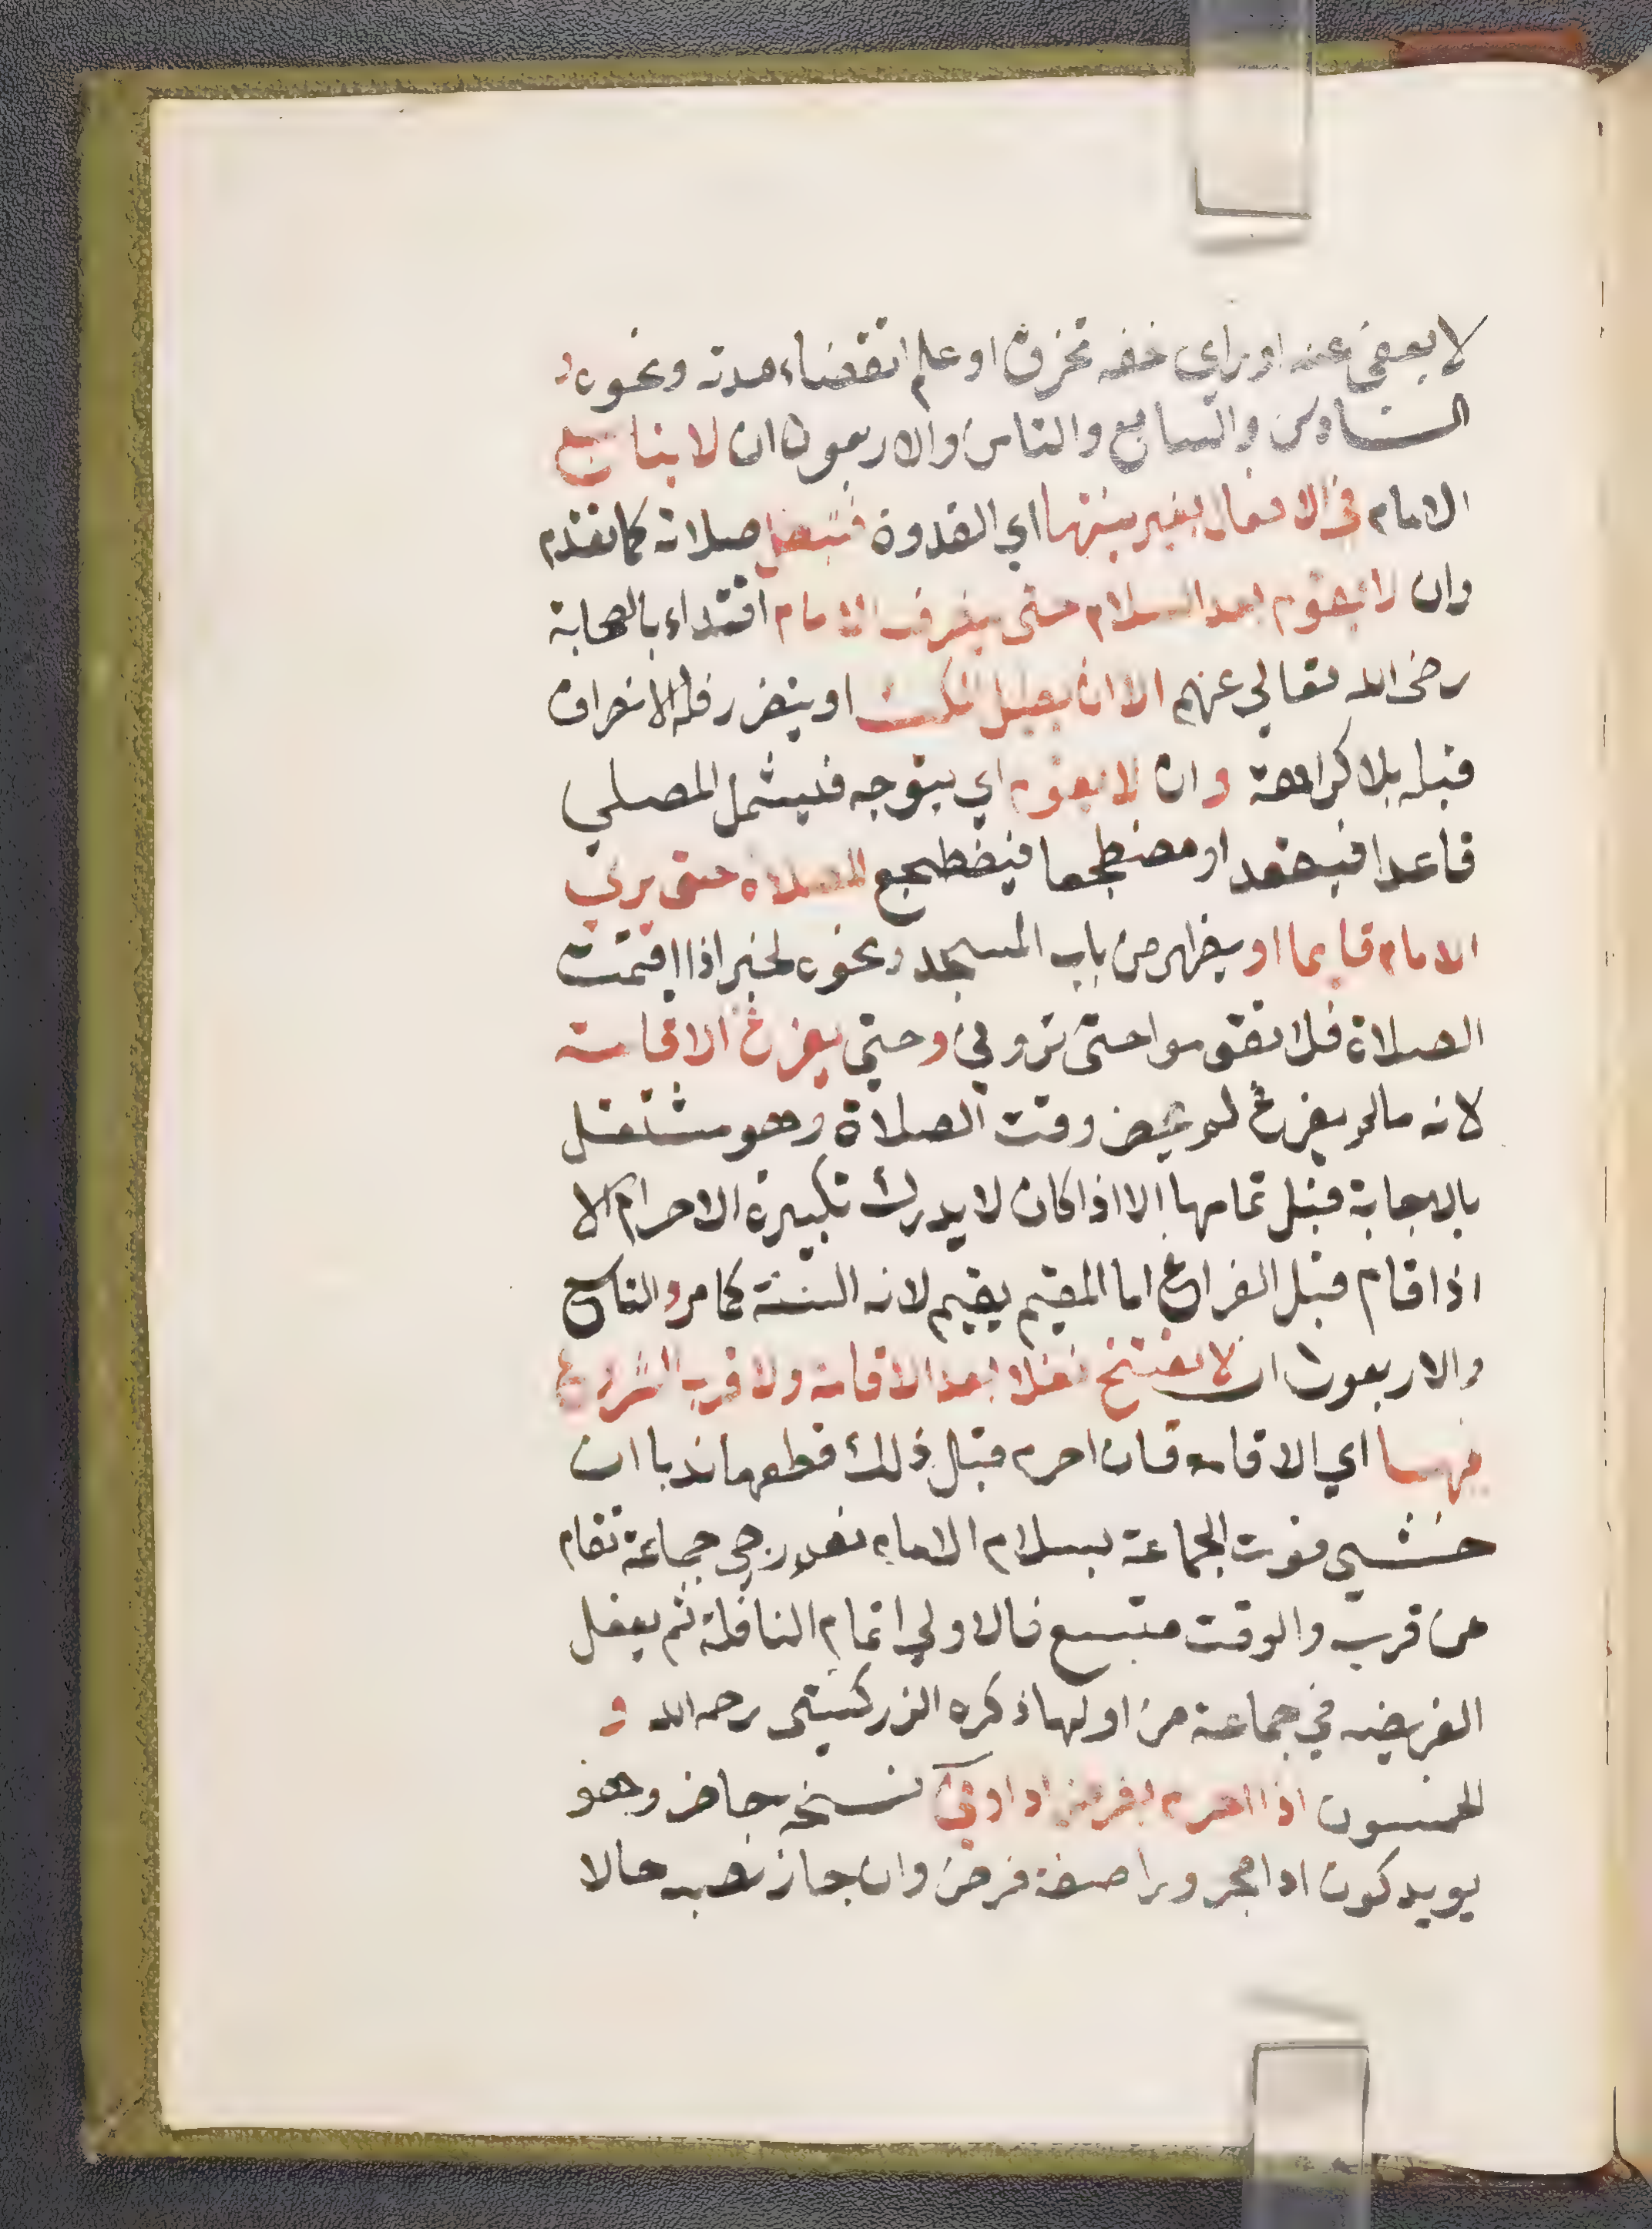 لا يعفى عنه او راي خفه تخرق او علم انقضاء مدته ونحوه و
السادس والسابع والثامن والاربعون ان لا يتابع
الامام في الافعال بغير نيتها اي القدوة فتبطل صلاته كما تقدم
وان لا يقوم بعد السلام حتى ينحرف الامام اقتداء بالصحابة
رضى الله تعالي عنهم الا ان يطيل المكث او يتضرر فله الانحراف
قبله بلا كراهة وان لا يقوم اي يتوجه فيشمل المصلي
قاعدا فيقعد او مضطجعا فيضطجع للصلاة حتى يري
الامام قايما او يظهر من باب المسجد ونحوه لخبر اذا اقيمت
الصلاة فلا تقوموا حتى تروني وحتي يفرغ الاقامة
لانه مالم يفرغ لم يحضر وقت الصلاة وهو مشتغل
بالاجابة قبل تمامها الا اذا كان لا يدرك تكبيرة الاحرام الا
اذا قام قبل الفراغ اما المقيم يقيم لانه السنة كما مر والتاسع
والاربعون ان لا يفتتح نفلا بعد الاقامة ولا قرب الشروع
فيها اي الاقامه فان احرم قبل ذلك قطعها ندبا ان
خشي فوت الجماعة بسلام الامام نعم رجي جماعة تقام
من قرب والوقت متسع فالاولي اتمام النافلة ثم يفعل
الفريضه في جماعة من اولها ذكره الزركشي رحمه الله و
الخمسون اذا احرم بفرض ادا وفي نسخه حاضر وهو
يويد كون ادا مجرورا صفة فرض وان جاز نصبه حالا